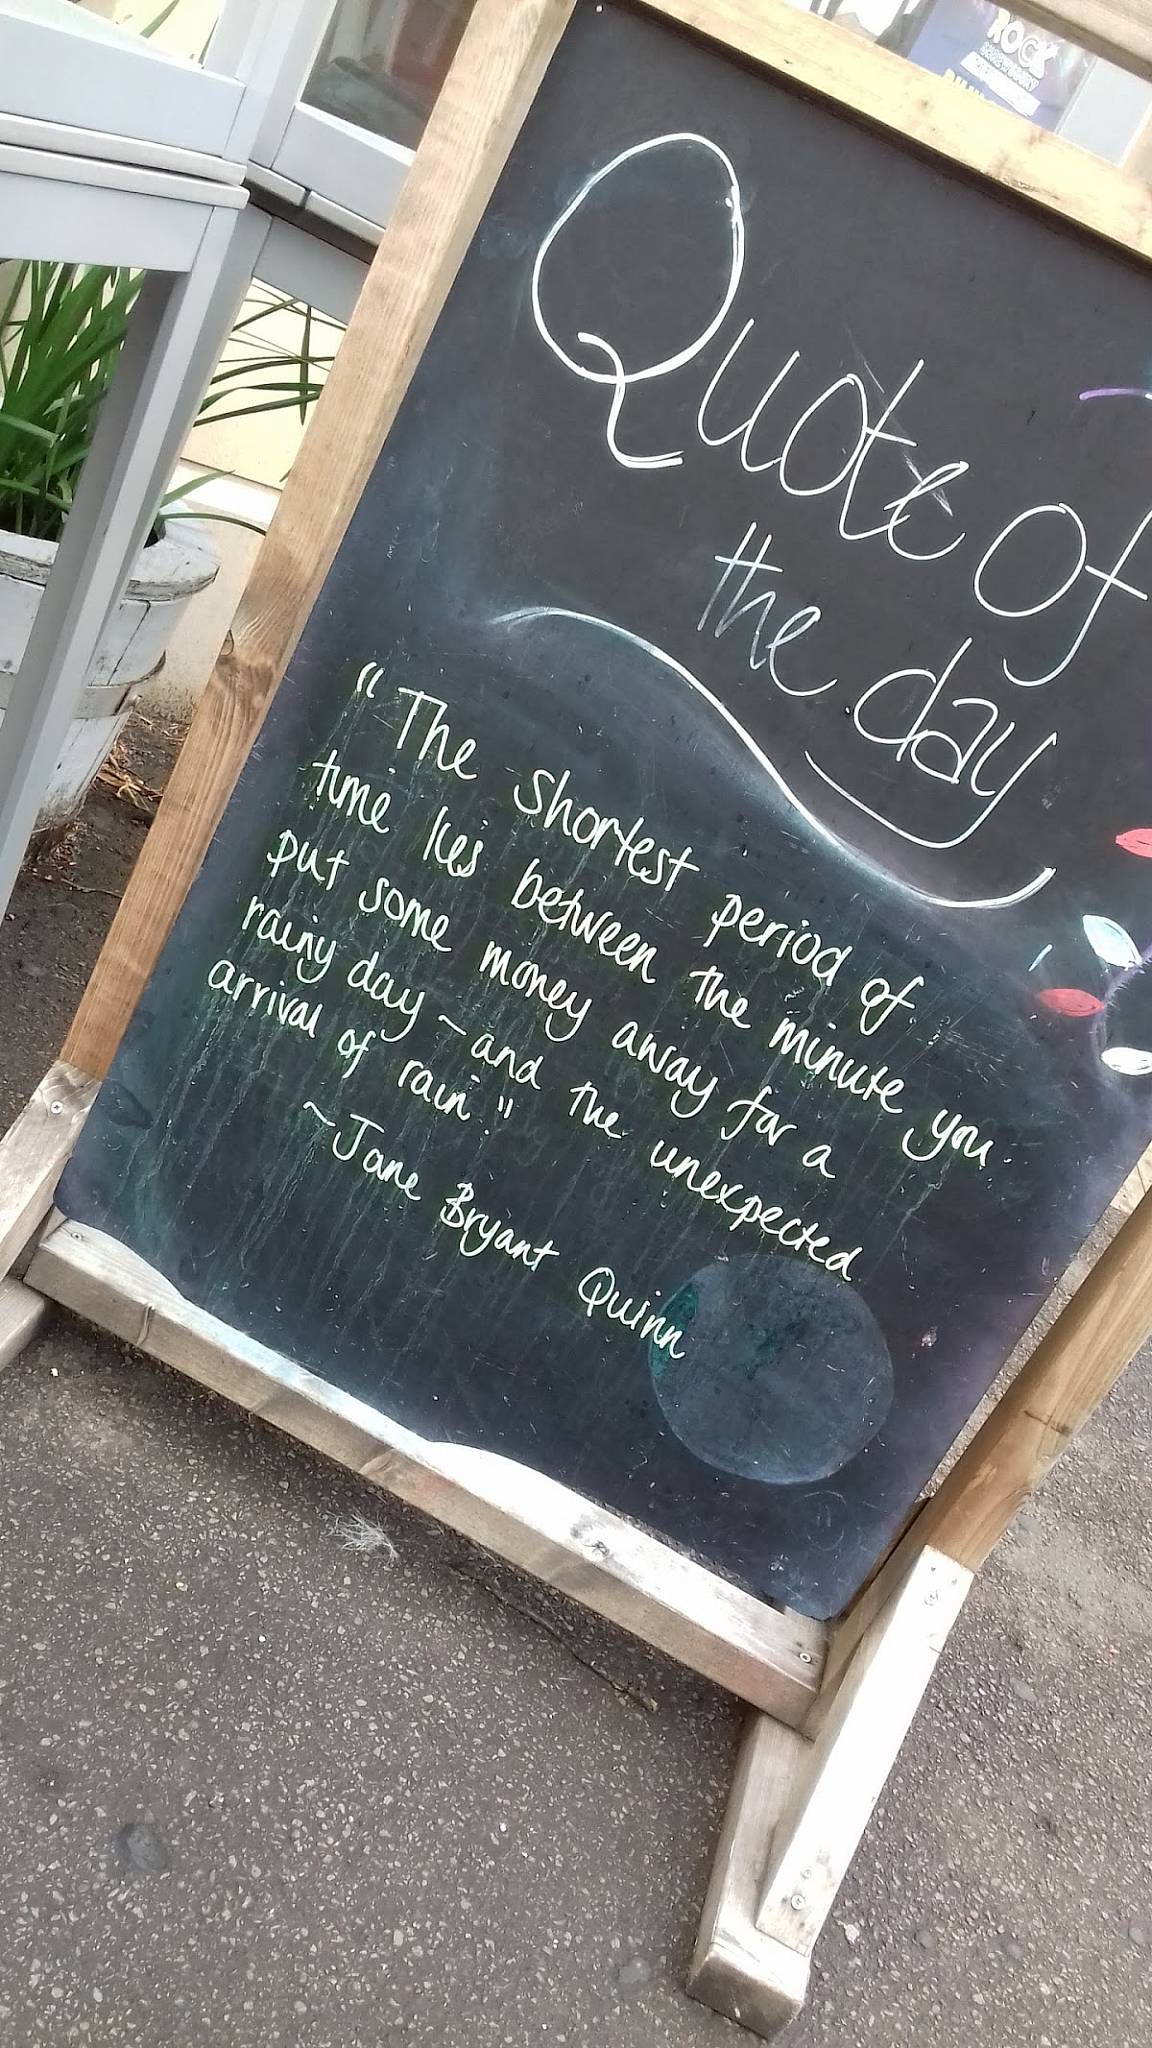 ROCK
Quote of
the day
"The Shortest period of
time lies between the minute you
put some money away for a
rainy day ~ and the unexpected
arrival of rain."
~Jane Bryant Quinn